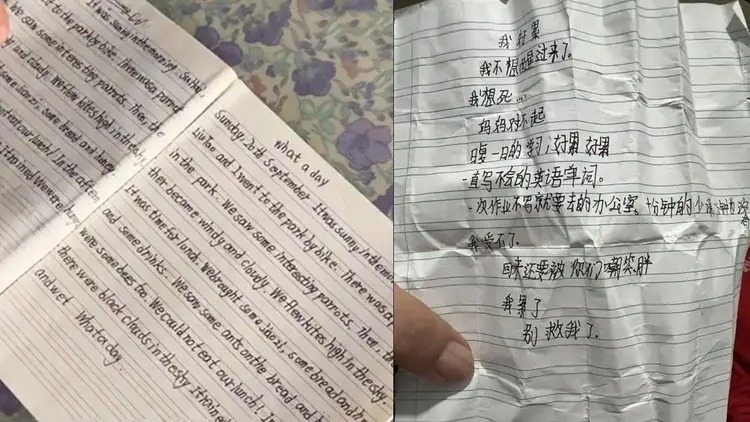 It was sunny in the morning.
to the park by bike. There was a parrot
We saw some interesting parrots. Then, the
and cloudy. We flew kites high in the sky
some bread and
eat our lunch! In the
It rained. We were
what a day
Sunday, 20th September. It was sunny in the
Liu Tao and I went to the park by bike. There was a
in the park. We saw some interesting parrots. Then,
ther become windy and cloudy. We flew kites high in the sky.
It was time for lunch. We brought some jiaozi, some bread and
and some drinks. We saw some ants on the bread and
were some bees too. We could not eat our lunch! In
there were black clouds in the sky. It rained
and wet. What a day.
我好累
我不想醒过来了。
我想死...
妈妈对不起
日复一日的学习好累好累
一直写不会的英语单词。
一次作业不写就要去的办公室。十分钟的小
我受不了.
回来还要被你们嘲笑胖
我累了
别救我了.